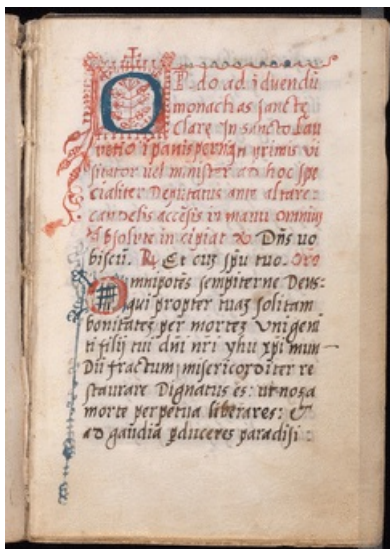 ORdo ad iduendū
monachas sancte
Clare in sancto Lau
rētio ī panisperna īn primis vi
sitator uel minister ad hoc spe
cialiter Deputatus ante altare:
candelis accēsis in manu omniuʒ
absolute incipiat ℣ Dn̄s uo
biscū. ℟ Et cuʒ spū tuo. Oro
Omnipotēs sempiterne Deus:
qui propter tuaʒ solitam
bonitateʒ per morteʒ vnigeni
ti filij tui dn̄i nr̄i yhu xpi mun
Dū fractum misericorditer re
staurare Dignatus es: ut nos a
morte perpetua liberares: &
ad gaudia ꝑduceres paradisi: